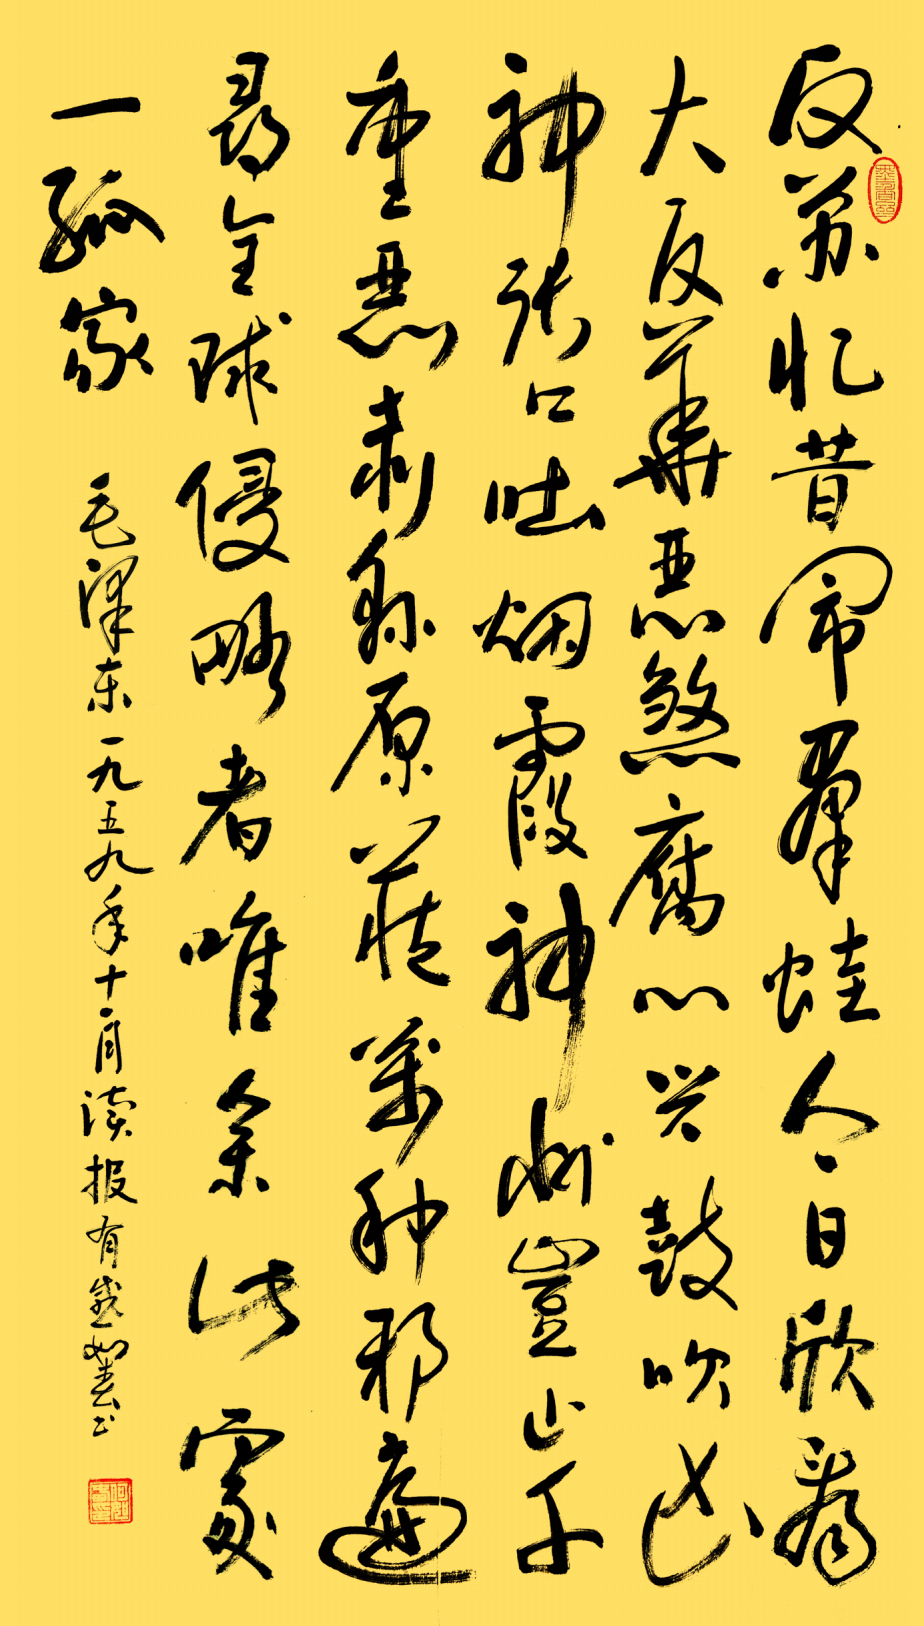 反苏忆昔闹群蛙今日欣看
大反華恶煞腐心兴鼓吹凶
神张口吐烟霞神州豈止千
重恶赤縣原藏萬种邪遍
尋全球侵略者唯余此處
一孤家
毛泽东一九五九年十一月读报有感